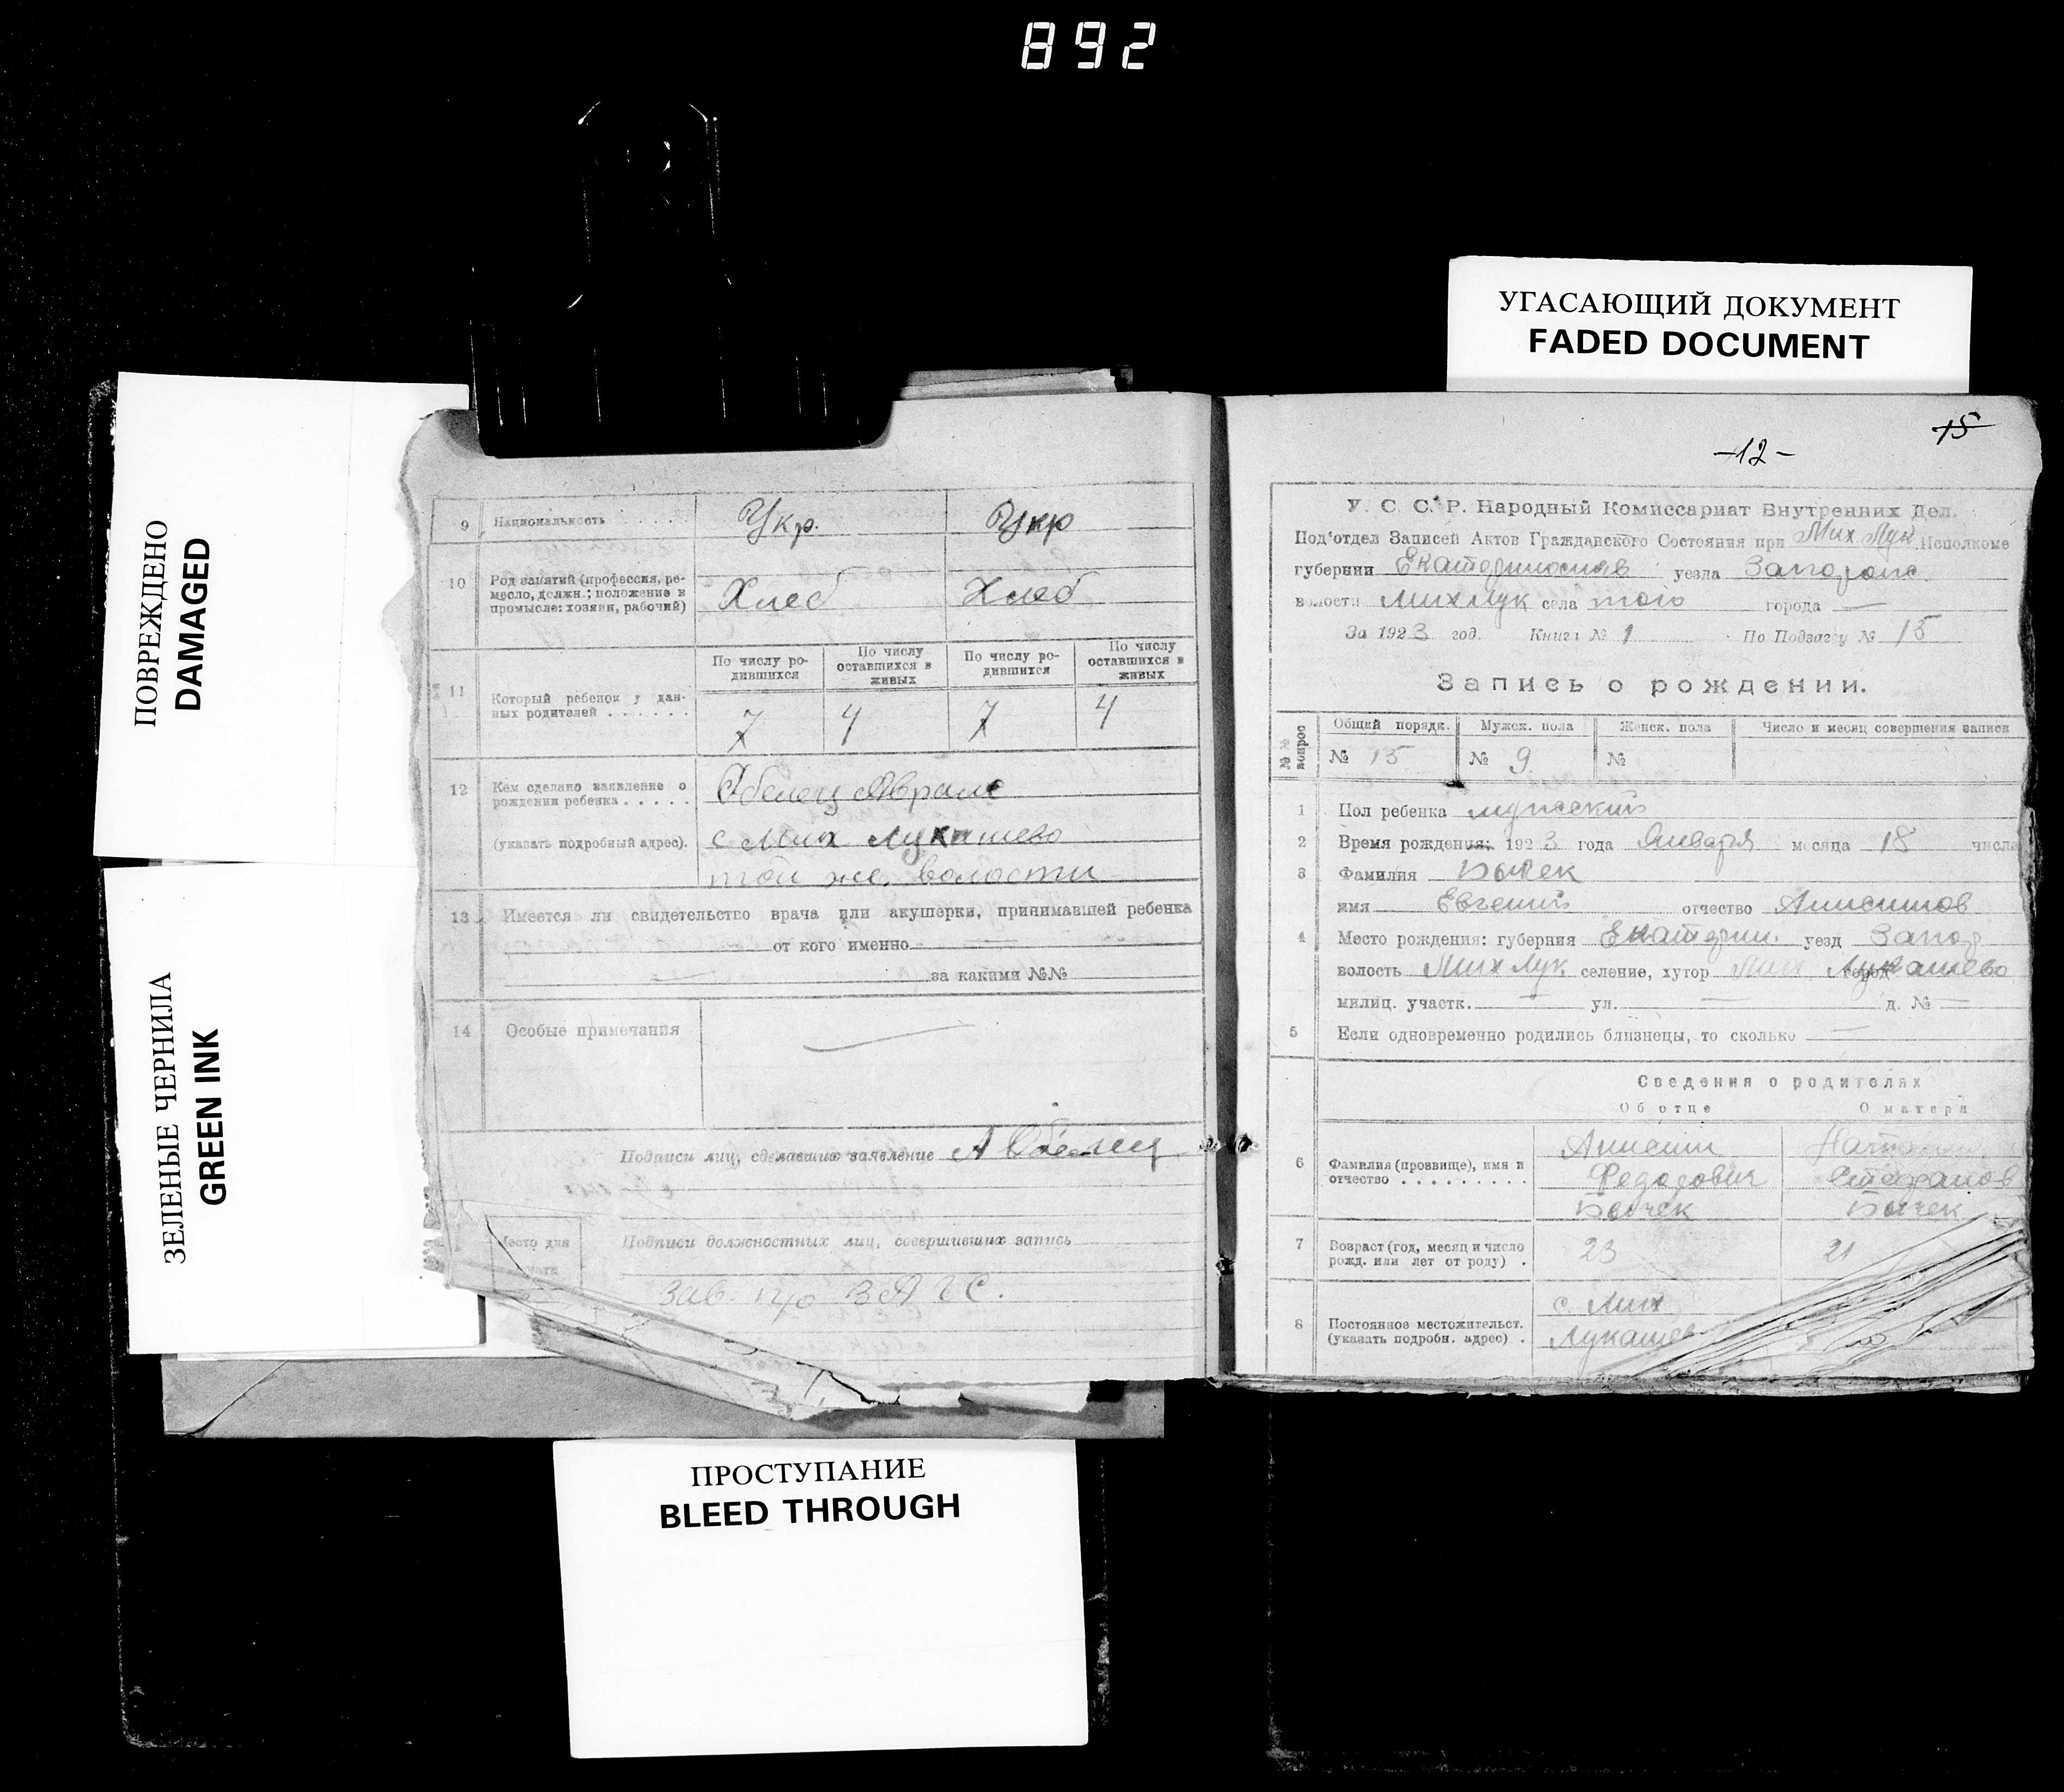 892
УГАСАЮЩИЙ ДОКУМЕНТ
FADED DOCUMENT
ПОВРЕЖДЕНО
DAMAGED
ЗЕЛЕНЫЕ ЧЕРНИЛА
GREEN INK
9 Национальность Укр. Укр
10 Род занятий (профессия, ре-
месло, должн.; положение в
промысле: хозяин, рабочий) Хлеб Хлеб
11 Который ребенок у дан-
ных родителей
По числу ро-
дившихся
По числу
оставшихся в
живых
По числу ро-
дившихся
По числу
оставшихся в
живых
7 4 7 4
12 Кем сделано заявление о
рождении ребенка Обелец Аврам
(указать подробный адрес). с Мих Лукашево
той же волости
13 Имеется ли свидетельство врача или акушерки, принимавшей ребенка
от кого именно
за какими №№
14 Особые примечания
Подписи лиц, сделавших заявление А Обелец
Место для
печати
Подписи должностных лиц, совершивших запись
Зав. п/о ЗАГС.
15
-12-
У. С. С. Р. Народный Комиссариат Внутренних Дел.
Под'отдел Записей Актов Гражданского Состояния при Мих Лук Исполкоме
губернии Екатеринослав уезда Запорож.
волости МихЛук села того города —
За 1923 год. Книга № 1 По Подзагсу № 15
Запись о рождении.
№№ вопрос
Общий порядк. Мужск. пола Женск. пола Число и месяц совершения записи
№ 15 № 9 №
1 Пол ребенка мужский
2 Время рождения: 1923 года Января месяца 18 числа
3 Фамилия Бычек
имя Евгений отчество Анисимов
4 Место рождения: губерния Екатерин. уезд Запор
волость МихЛук селение, хутор Мих Лукашево
милиц. участк. — ул. — д. № —
5 Если одновременно родились близнецы, то сколько —
Сведения о родителях
Об отце О матери
6 Фамилия (прозвище), имя и
отчество
Анисим
Федорович
Бычек
Стефанов
Бычек
7 Возраст (год, месяц и число
рожд. или лет от роду) . 23 21
8 Постоянное местожительст.
(указать подробн. адрес) .
с. Мих
Лукашев
ПРОСТУПАНИЕ
BLEED THROUGH